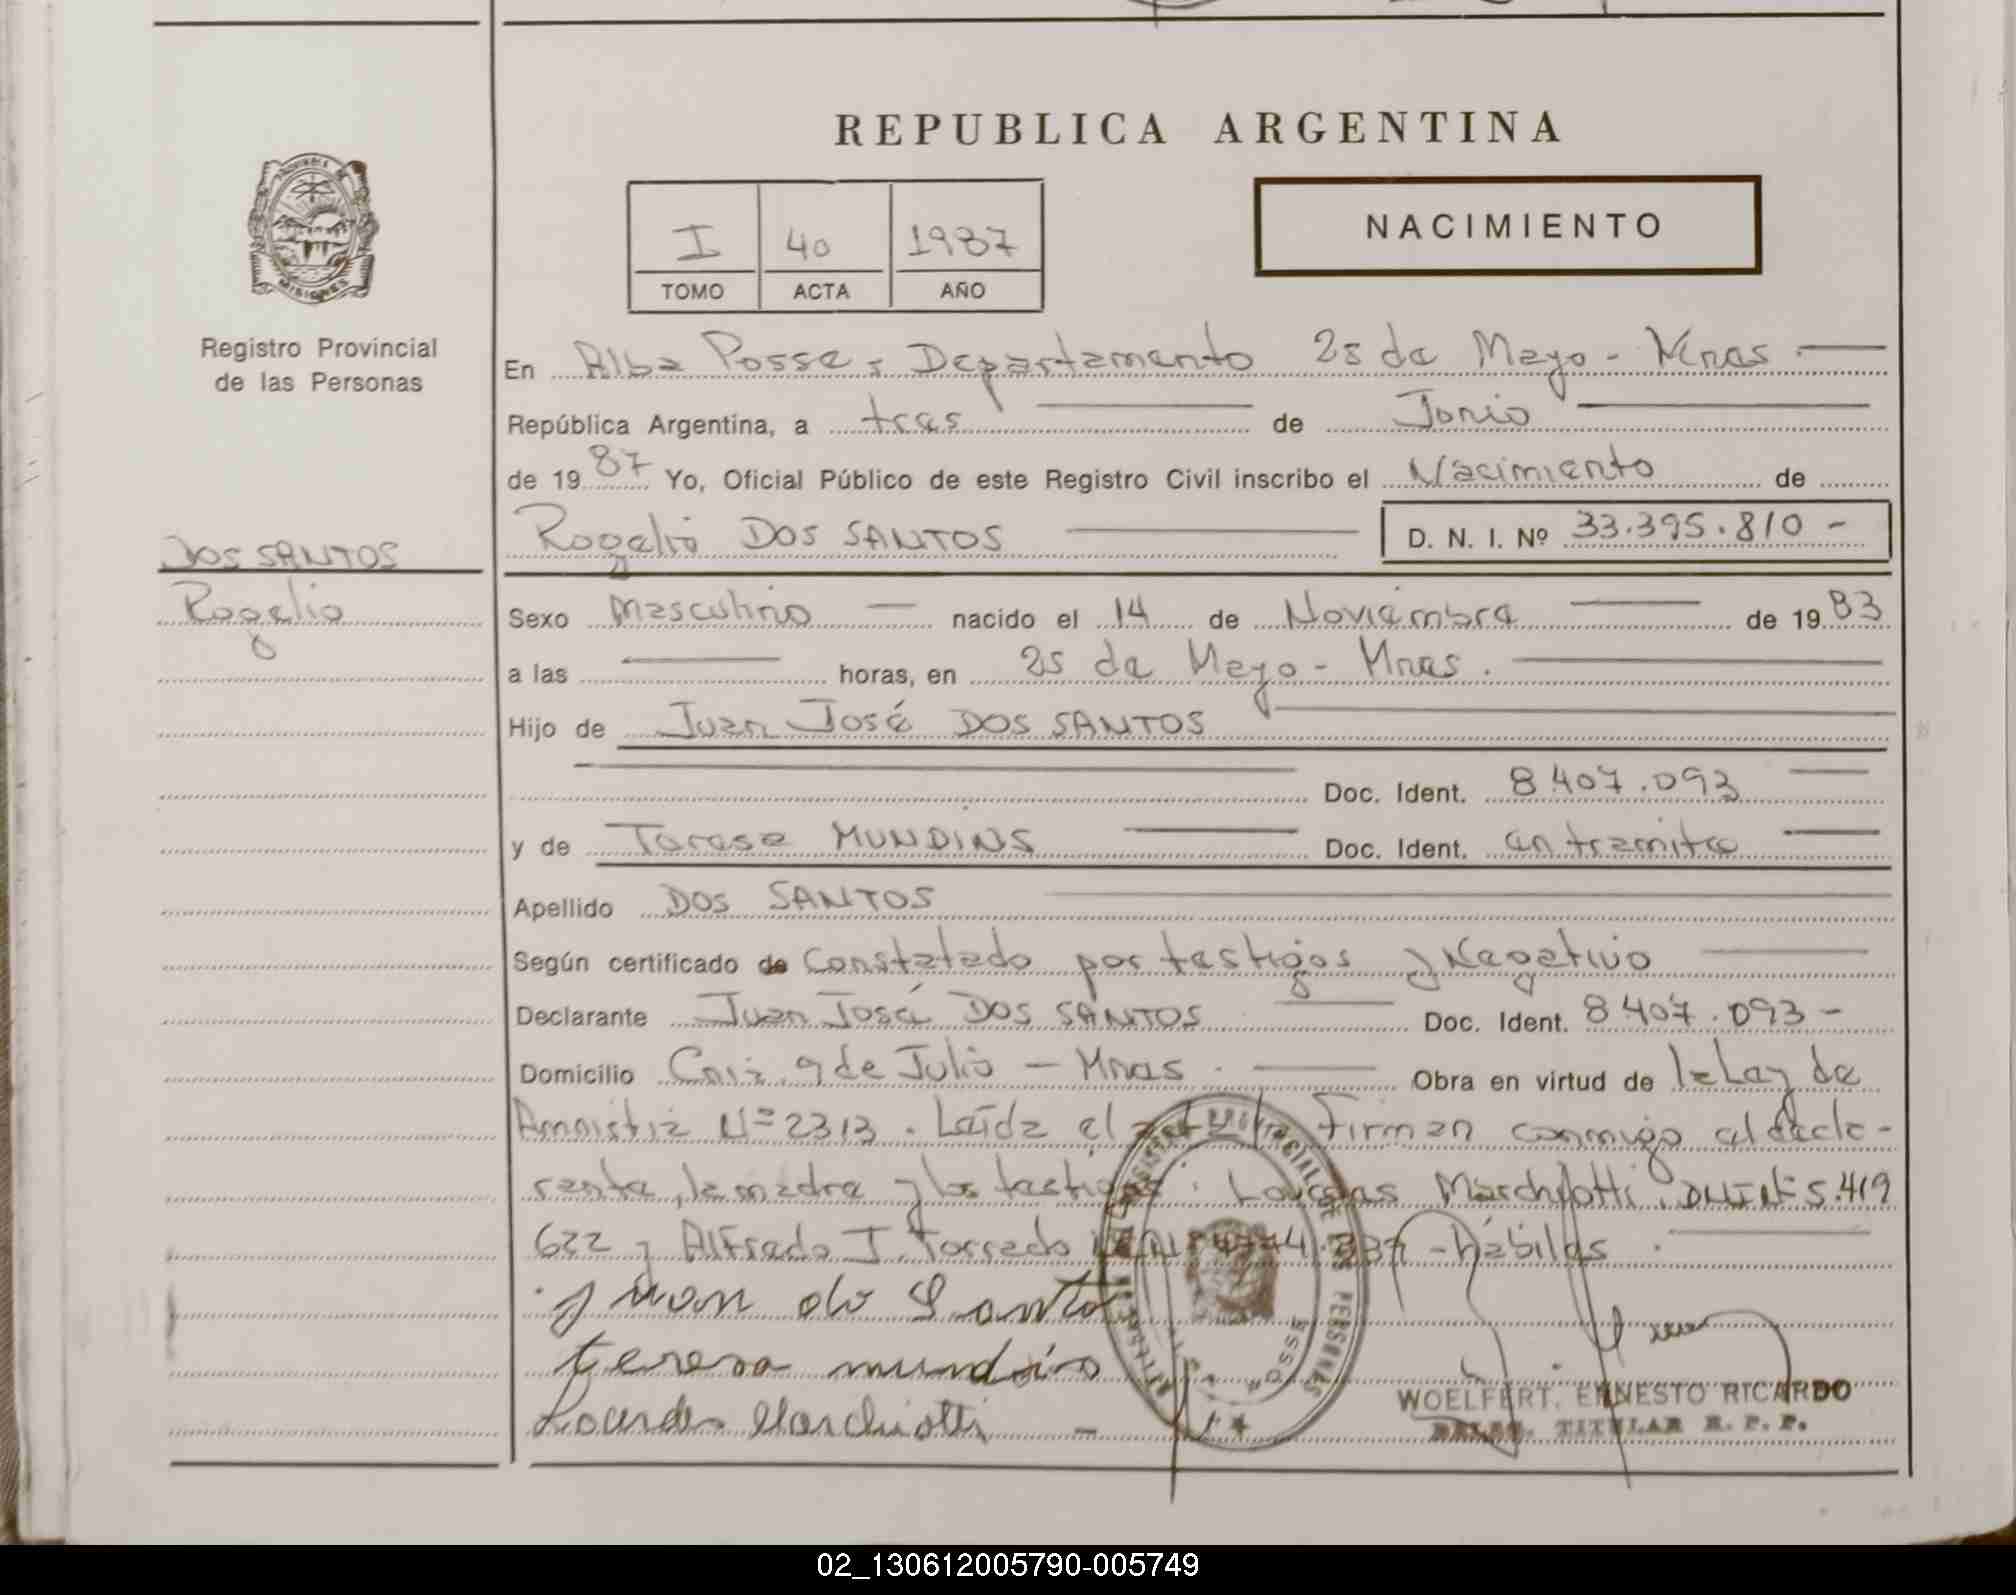 REPUBLICA ARGENTINA
PROVINCIA DE
MISIONES
Registro Provincial
de las Personas
I 40 1987
TOMO ACTA AÑO
NACIMIENTO
En Alba Posse, Departamento 25 de Mayo - Mnas.
República Argentina, a tres de Junio
de 1987 Yo, Oficial Público de este Registro Civil inscribo el Nacimiento de
Rogelio DOS SANTOS D. N. I. Nº 33.395.810 -
DOS SANTOS
Rogelio
Sexo Masculino nacido el 14 de Noviembre de 1983
a las horas, en 25 de Mayo - Mnas.
Hijo de Juan José DOS SANTOS
Doc. Ident. 8.407.093
y de Teresa MUNDINS Doc. Ident. en tramite
Apellido DOS SANTOS
Según certificado de Constatado por testigos y Negativo
Declarante Juan José DOS SANTOS Doc. Ident. 8.407.093 -
Domicilio 9 de Julio - Mnas. Obra en virtud de la Ley de
Amnistia Nº 2313. Leída el acta Firman conmigo el decla-
rante, la madre y los testigos: Marchiotti, DNI Nº 5.419
622 y Alfredo J. Torredo - hábiles.
Juan do Santo
teresa
Lourdes Marchiotti -
REGISTRO PROVINCIAL DE LAS PERSONAS
POSSE
WOELFERT, ERNESTO RICARDO
DELEG. TITULAR R. P. P.
02_130612005790-005749